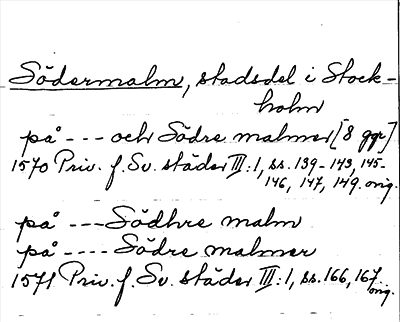 Södermalm, stadsdel i Stock-
holm
på --- och Södre malmer [8 ggr]
1570 Priv. f. Sv. städer III:1, ss. 139-143, 145-
146, 147, 149. orig.
på --- Södhre malm
på ---- Södre malmer
1571 Priv. f. Sv. städer III:1, ss. 166, 167.
orig.